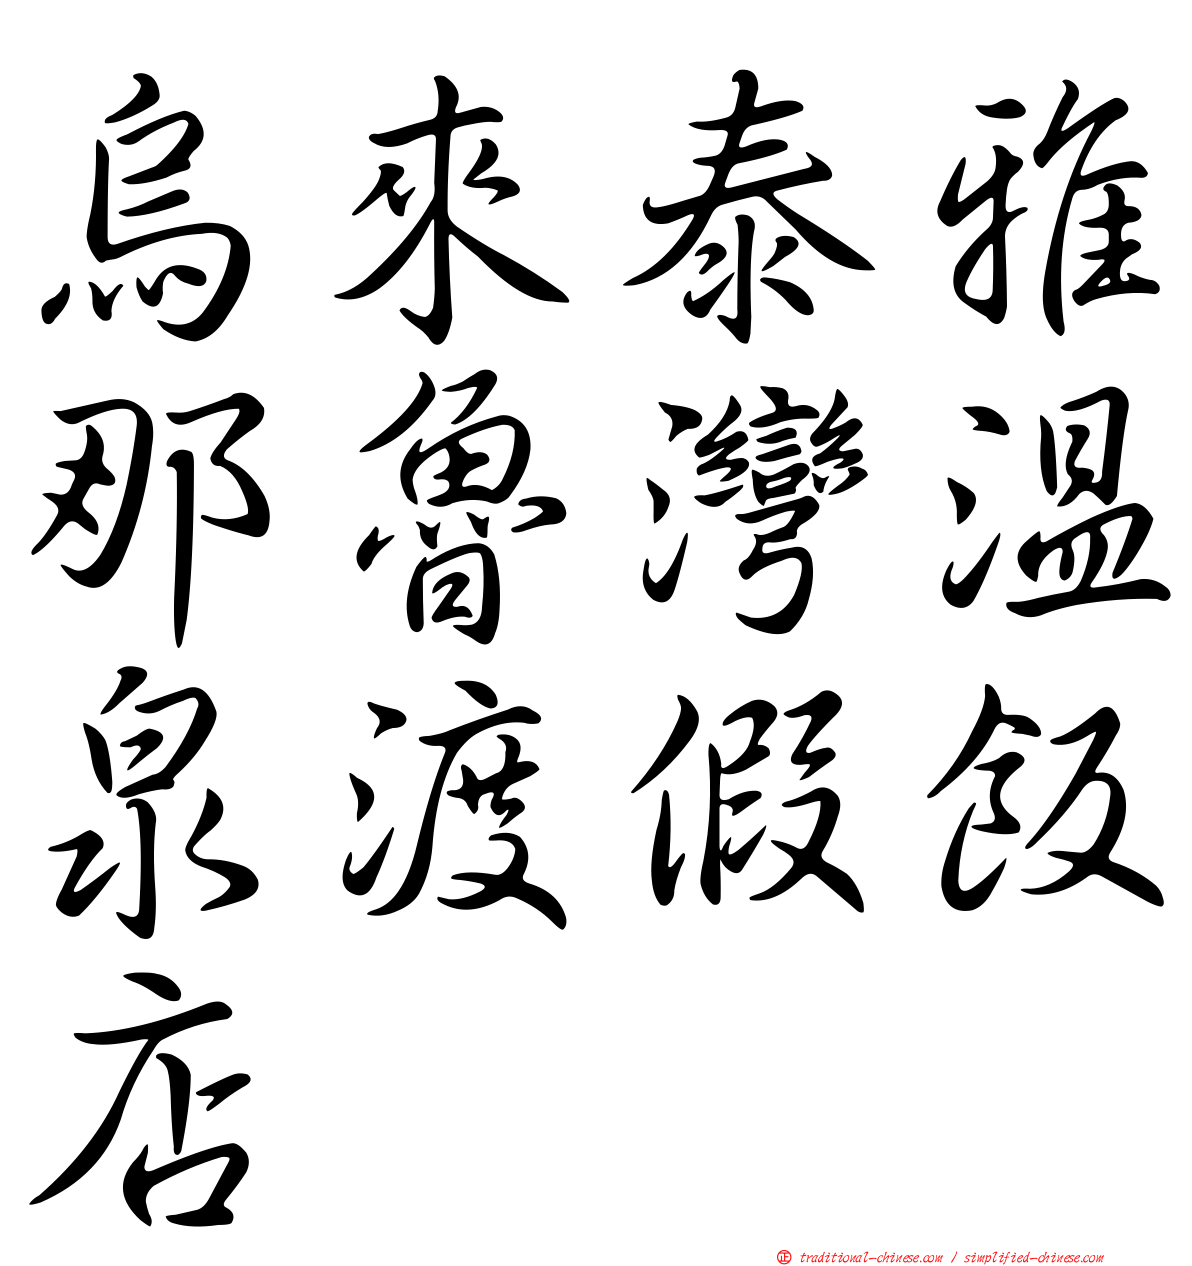 烏來泰雅
那魯灣溫
泉渡假飯
店
正 traditional-chinese.com / simplified-chinese.com